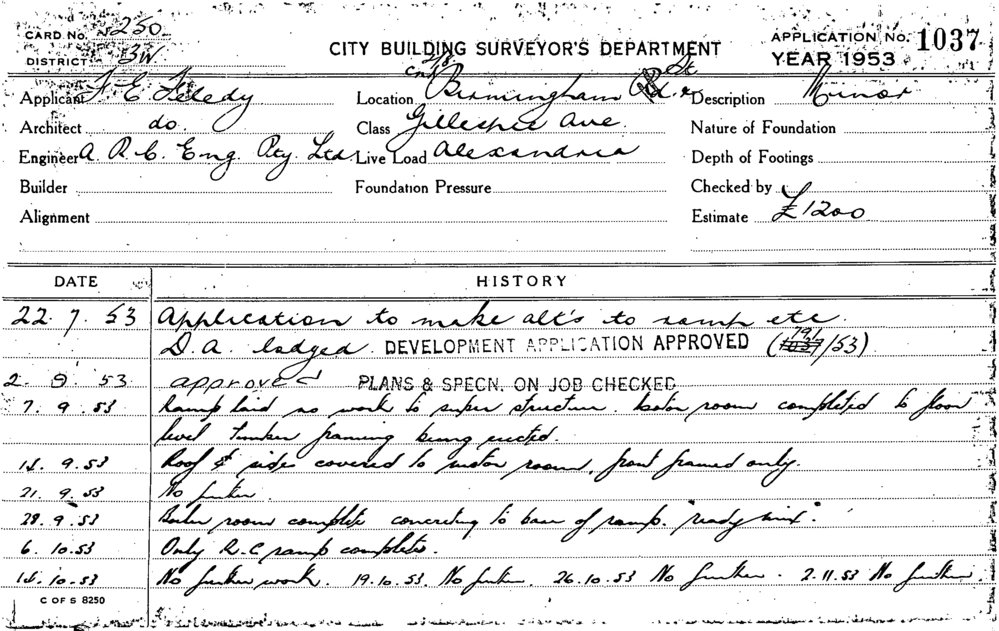 CARD No. 250
DISTRICT BW
CITY BUILDING SURVEYOR'S DEPARTMENT
APPLICATION No. 1037
YEAR 1953
Applicant F. E. Feledy
Location Cnr Birmingham St &
Description Minor
Architect do.
Class Gillespie Ave.
Nature of Foundation
Engineer A. R. C. Eng. Pty. Ltd.
Live Load Alexandria
Depth of Footings
Builder
Foundation Pressure
Checked by
Alignment
Estimate £1200
DATE HISTORY
22. 7. 53 Application to make alt's to ramp etc.
D. A. lodged. DEVELOPMENT APPLICATION APPROVED (791/53)
2. 9. 53 approved PLANS & SPECN. ON JOB CHECKED
7. 9. 53 Ramp laid no work to super structure. room completed to floor
level timber framing being erected.
14. 9. 53 Roof & sides covered to motor room, front framed only.
21. 9. 53 No further.
28. 9. 53 Boiler room complete concreting to base of ramp. "ready mix".
6. 10. 53 Only R.C ramp complete.
14. 10. 53 No further work. 19.10.53 No further. 26.10.53 No further. 2.11.53 No further.
C OF S 8250